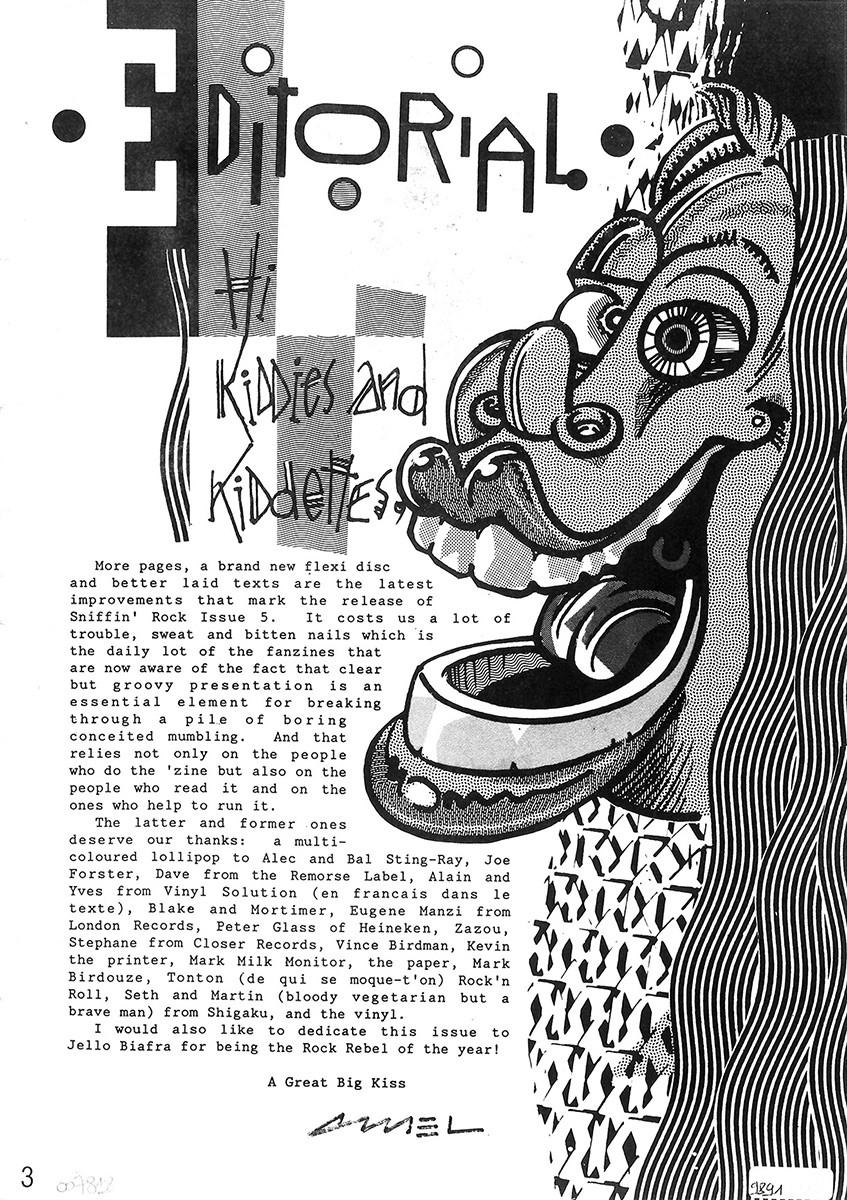 EDiTORiAL.
Hi
KiDDiEs and
KiDdettEs,
More pages, a brand new flexi disc
and better laid texts are the latest
improvements that mark the release of
Sniffin' Rock Issue 5. It costs us a lot of
trouble, sweat and bitten nails which is
the daily lot of the fanzines that
are now aware of the fact that clear
but groovy presentation is an
essential element for breaking
through a pile of boring
conceited mumbling. And that
relies not only on the people
who do the 'zine but also on the
people who read it and on the
ones who help to run it.
The latter and former ones
deserve our thanks: a multi-
coloured lollipop to Alec and Bal Sting-Ray, Joe
Forster, Dave from the Remorse Label, Alain and
Yves from Vinyl Solution (en francais dans le
texte), Blake and Mortimer, Eugene Manzi from
London Records, Peter Glass of Heineken, Zazou,
Stephane from Closer Records, Vince Birdman, Kevin
the printer, Mark Milk Monitor, the paper, Mark
Birdouze, Tonton (de qui se moque-t'on) Rock'n
Roll, Seth and Martin (bloody vegetarian but a
brave man) from Shigaku, and the vinyl.
I would also like to dedicate this issue to
Jello Biafra for being the Rock Rebel of the year!
A Great Big Kiss
3